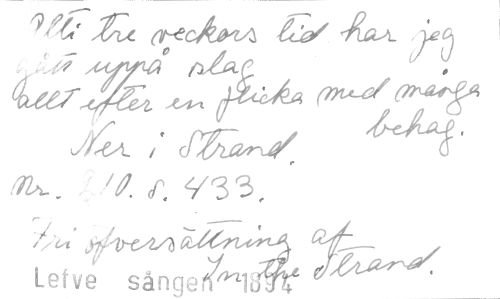 Uti tre veckors tid har jag
gått uppå slag
allt efter en flicka med många
behag.
Ner i Strand.
Nr. 210. s. 433.
Fri öfversättning af
In the Strand.
Lefve sången 1894